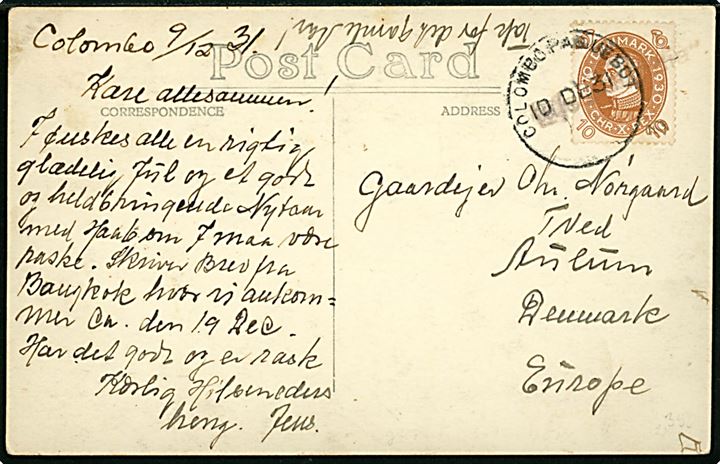 Colombo 9/12 31.
Tak for det gamle Aar!
Post Card
CORRESPONDENCE
ADDRESS
Kære allesammen!
I ønskes alle en rigtig
glædelig Jul og et godt
og heldbringende Nytaar
med Haab om I maa være
raske. Skriver Brev fra
Bangkok hvor vi ankom=
mer Ca. den 19 Dec.
Har det godt og er rask
Kærlig Hilsen eders
heng. Jens.
COLOMBO PAQUEBOT
10 DE 31
DANMARK 1930
CHR X REX
10 10
Gaardejer Chr. Nørgaard
Tved
Aulum
Denmark
Europe